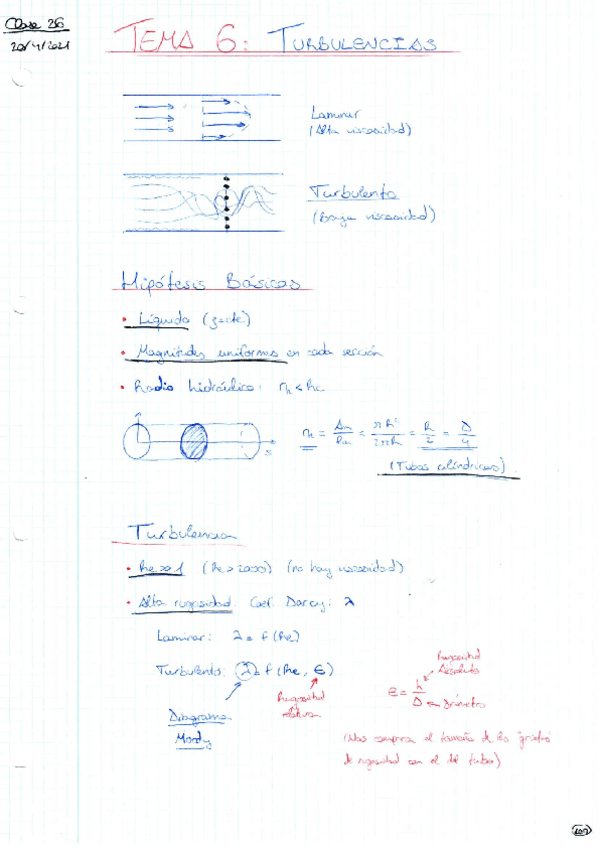 Clase 26
20/4/2021
TEMA 6: TURBULENCIAS
Laminar
(Alta viscosidad)
Turbulento
(Baja viscosidad)
Hipótesis Básicas
• Líquido (ρ=cte)
• Magnitudes uniformes en cada sección
• Radio hidráulico: rh < Rc
rh = Am/Pm = πR²/2πR = R/2 = D/4
(Tubos cilíndricos).
s
Turbulencia
• Re>>1 (Re > 2000) (no hay viscosidad)
• Alta rugosidad: Coef. Darcy: λ
Laminar: λ = f(Re)
Turbulento: λ = f(Re, ε)
Rugosidad
relativa
Diagrama
Moody
Rugosidad
Absoluta
ε = h/D ← Diámetro
(Nos compara el tamaño de los "granos"
de rugosidad con el del tubo)